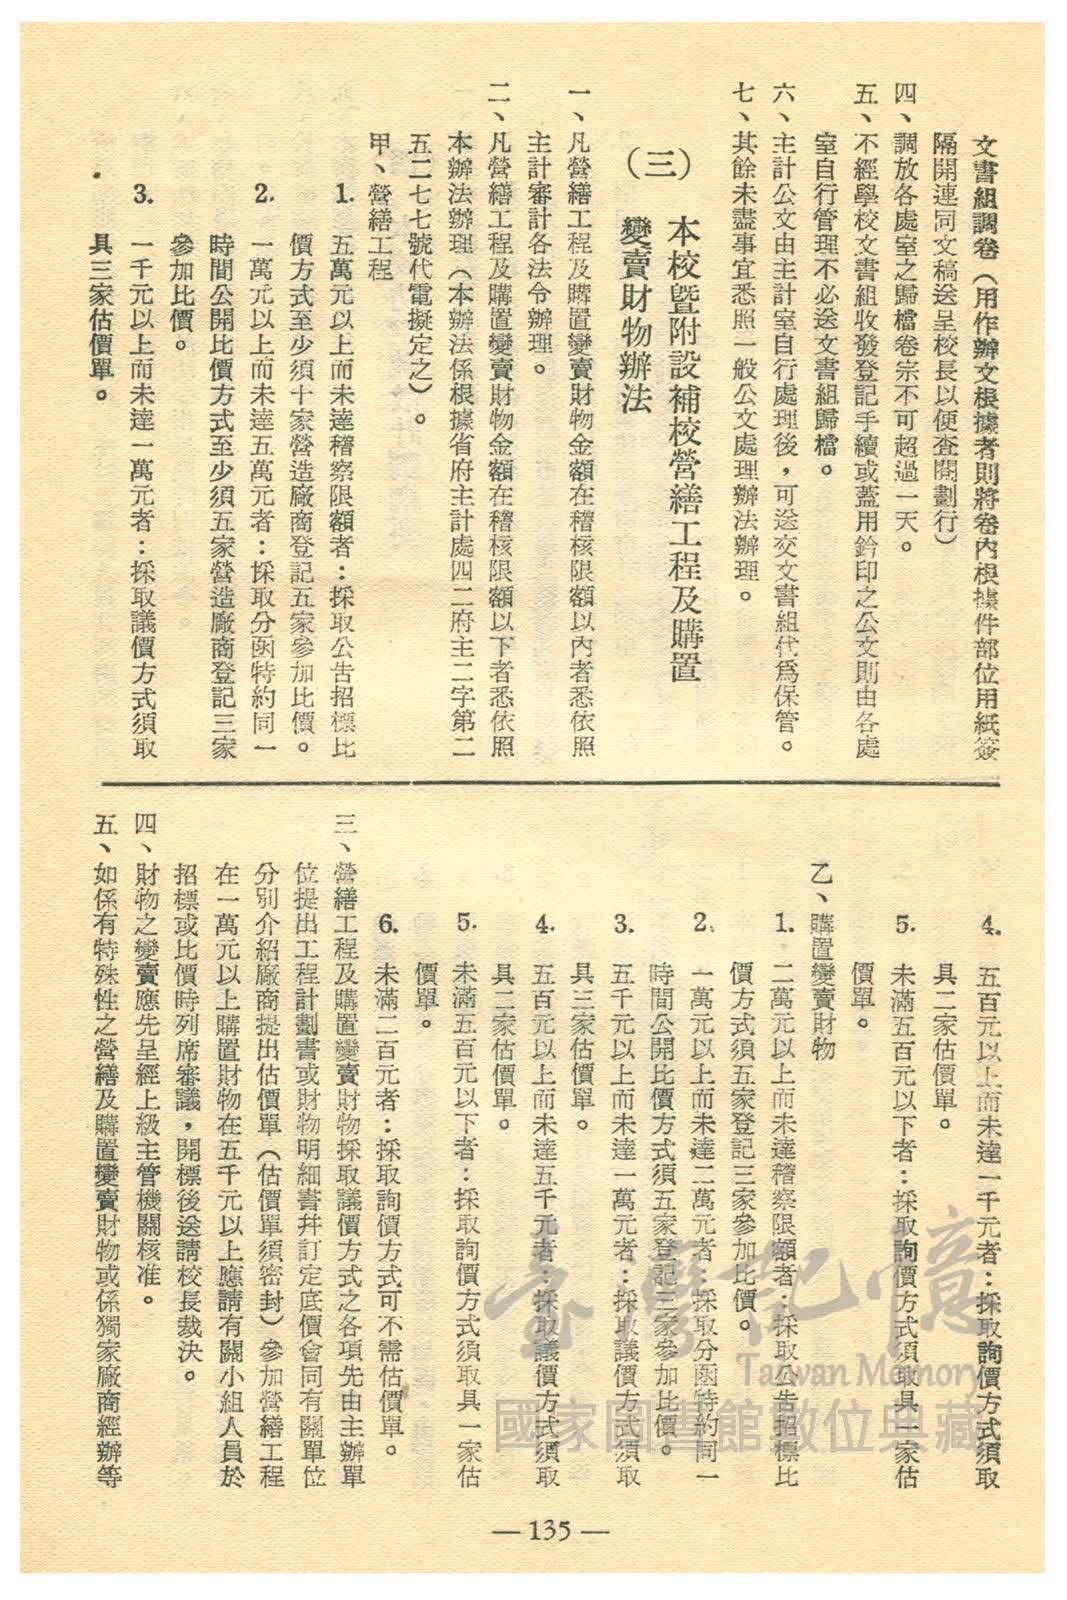 文書組調卷（用作辦文根據者則將卷內根據件部位用紙簽
隔開連同文稿送呈校長以便查閱劃行）
四、調放各處室之歸檔卷宗不可超過一天。
五、不經學校文書組收發登記手續或蓋用鈐印之公文則由各處
室自行管理不必送文書組歸檔。
六、主計公文由主計室自行處理後，可送交文書組代爲保管。
七、其餘未盡事宜悉照一般公文處理辦法辦理。
（三）本校暨附設補校營繕工程及購置
變賣財物辦法
一、凡營繕工程及購置變賣財物金額在稽核限額以內者悉依照
主計審計各法令辦理。
二、凡營繕工程及購置變賣財物金額在稽核限額以下者悉依照
本辦法辦理（本辦法係根據省府主計處四二府主二字第二
五二七七號代電擬定之）。
甲、營繕工程
1. 五萬元以上而未達稽察限額者：採取公告招標比
價方式至少須十家營造廠商登記五家參加比價。
2. 一萬元以上而未達五萬元者：採取分函特約同一
時間公開比價方式至少須五家營造廠商登記三家
參加比價。
3. 一千元以上而未達一萬元者：採取議價方式須取
具三家估價單。
4. 五百元以上而未達一千元者：採取詢價方式須取
具二家估價單。
5. 未滿五百元以下者：採取詢價方式須取具一家估
價單。
乙、購置變賣財物
1. 二萬元以上而未達稽察限額者：採取公告招標比
價方式須五家登記三家參加比價。
2. 一萬元以上而未達二萬元者：採取分函特約同一
時間公開比價方式須五家登記三家參加比價。
3. 五千元以上而未達一萬元者：採取議價方式須取
具三家估價單。
4. 五百元以上而未達五千元者：採取議價方式須取
具二家估價單。
5. 未滿五百元以下者：採取詢價方式須取具一家估
價單。
6. 未滿二百元者：採取詢價方式可不需估價單。
三、營繕工程及購置變賣財物採取議價方式之各項先由主辦單
位提出工程計劃書或財物明細書幷訂定底價會同有關單位
分別介紹廠商提出估價單（估價單須密封）參加營繕工程
在一萬元以上購置財物在五千元以上應請有關小組人員於
招標或比價時列席審議，開標後送請校長裁決。
四、財物之變賣應先呈經上級主管機關核准。
五、如係有特殊性之營繕及購置變賣財物或係獨家廠商經辦等
臺灣記憶
Taiwan Memory
國家圖書館數位典藏
— 135 —